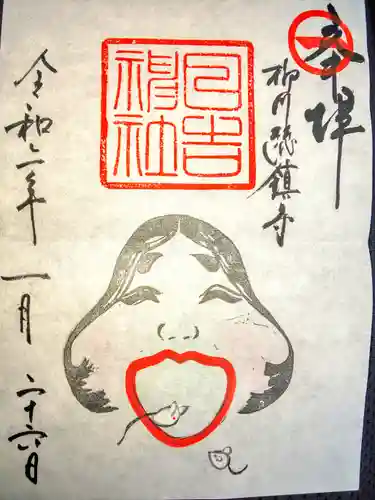 奉拝
柳川総鎮守
日吉
神社
令和二年
一月
二十六日